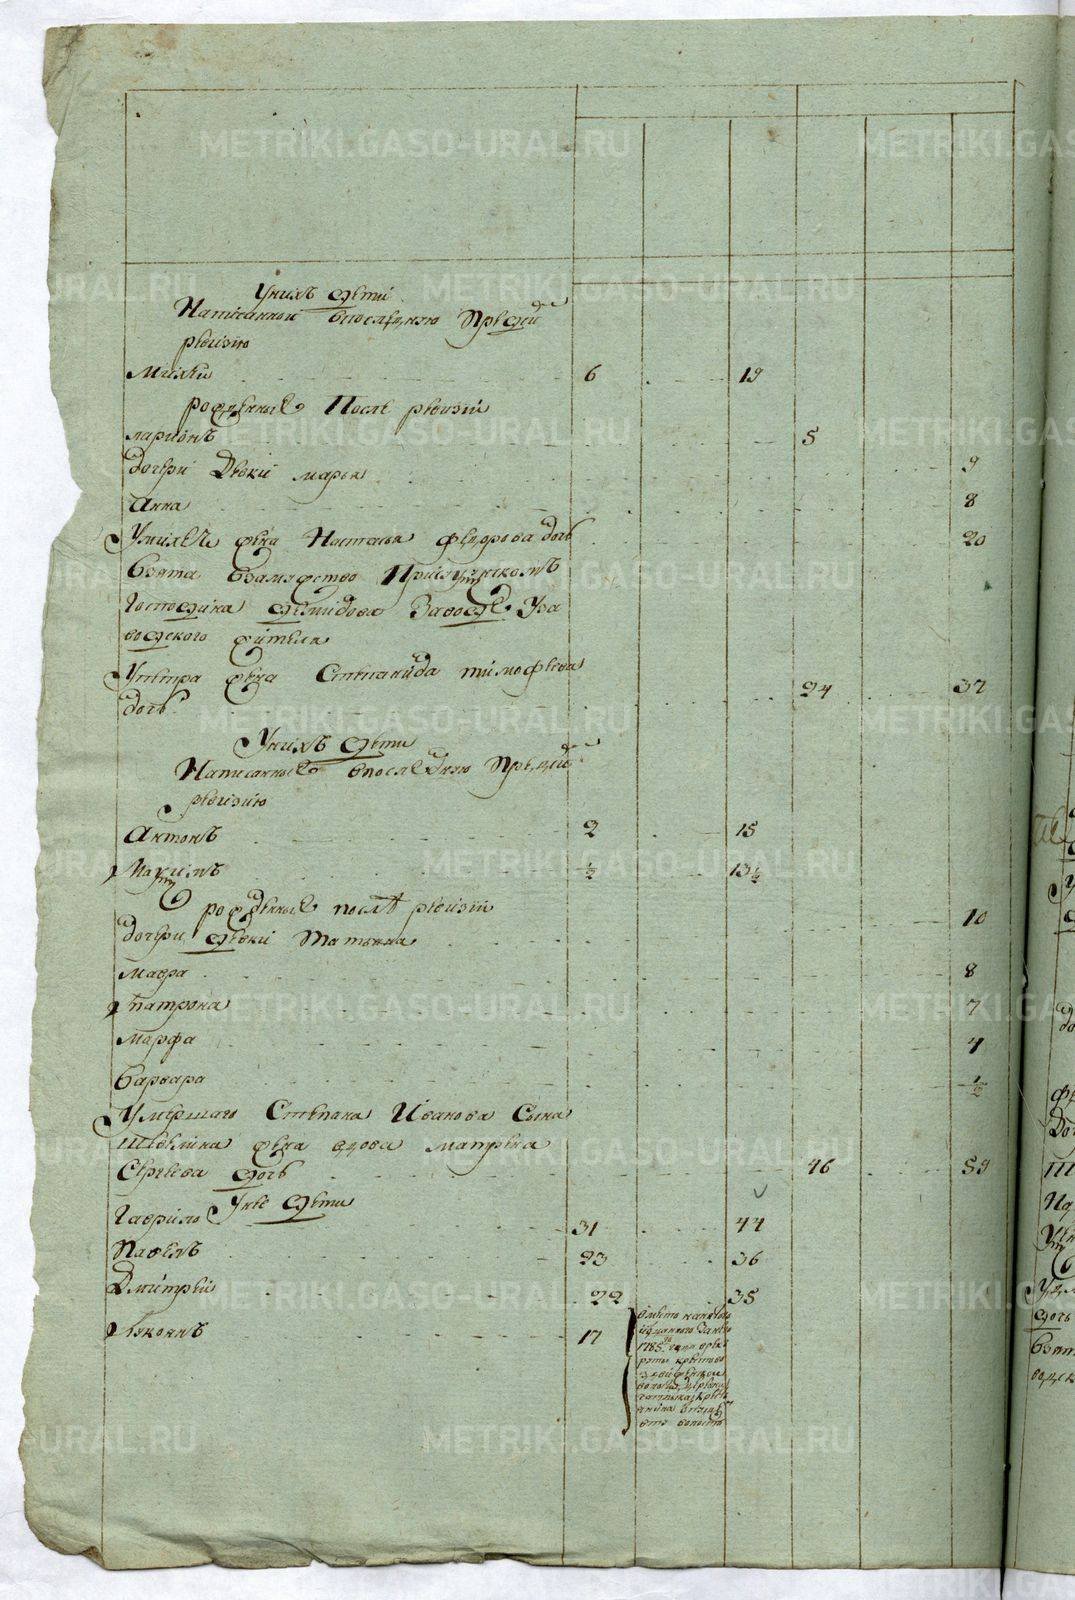 У них дети
Написанной в последнюю пред сей
ревизию
Михей 6 19
рожденные После ревизии
ларион 5
дочери Девки марья 9
Анна 8
У михея жена Настасья федорова дочь 20
взята в замужство При
Господина демидова заводе У за
водского жителя
У петра жена Степанида тимофеева
дочь 24 37
У них дети
Написанные в последнюю пред сей
ревизию
Антон 2 15
Максим ½ 13½
рожденные после ревизии 10
дочери девки Татьяна
Мавра 8
Матрона 7
Марфа 4
Варвара ½
Умершаго Степана Иванова Сына
жена вдова Матрена
Сергеева дочь 46 59
У нее дети
Гаврило 31 44
Павел 23 36
Дмитрей 22 35
Яков 17
METRIKI.GASO-URAL.RU